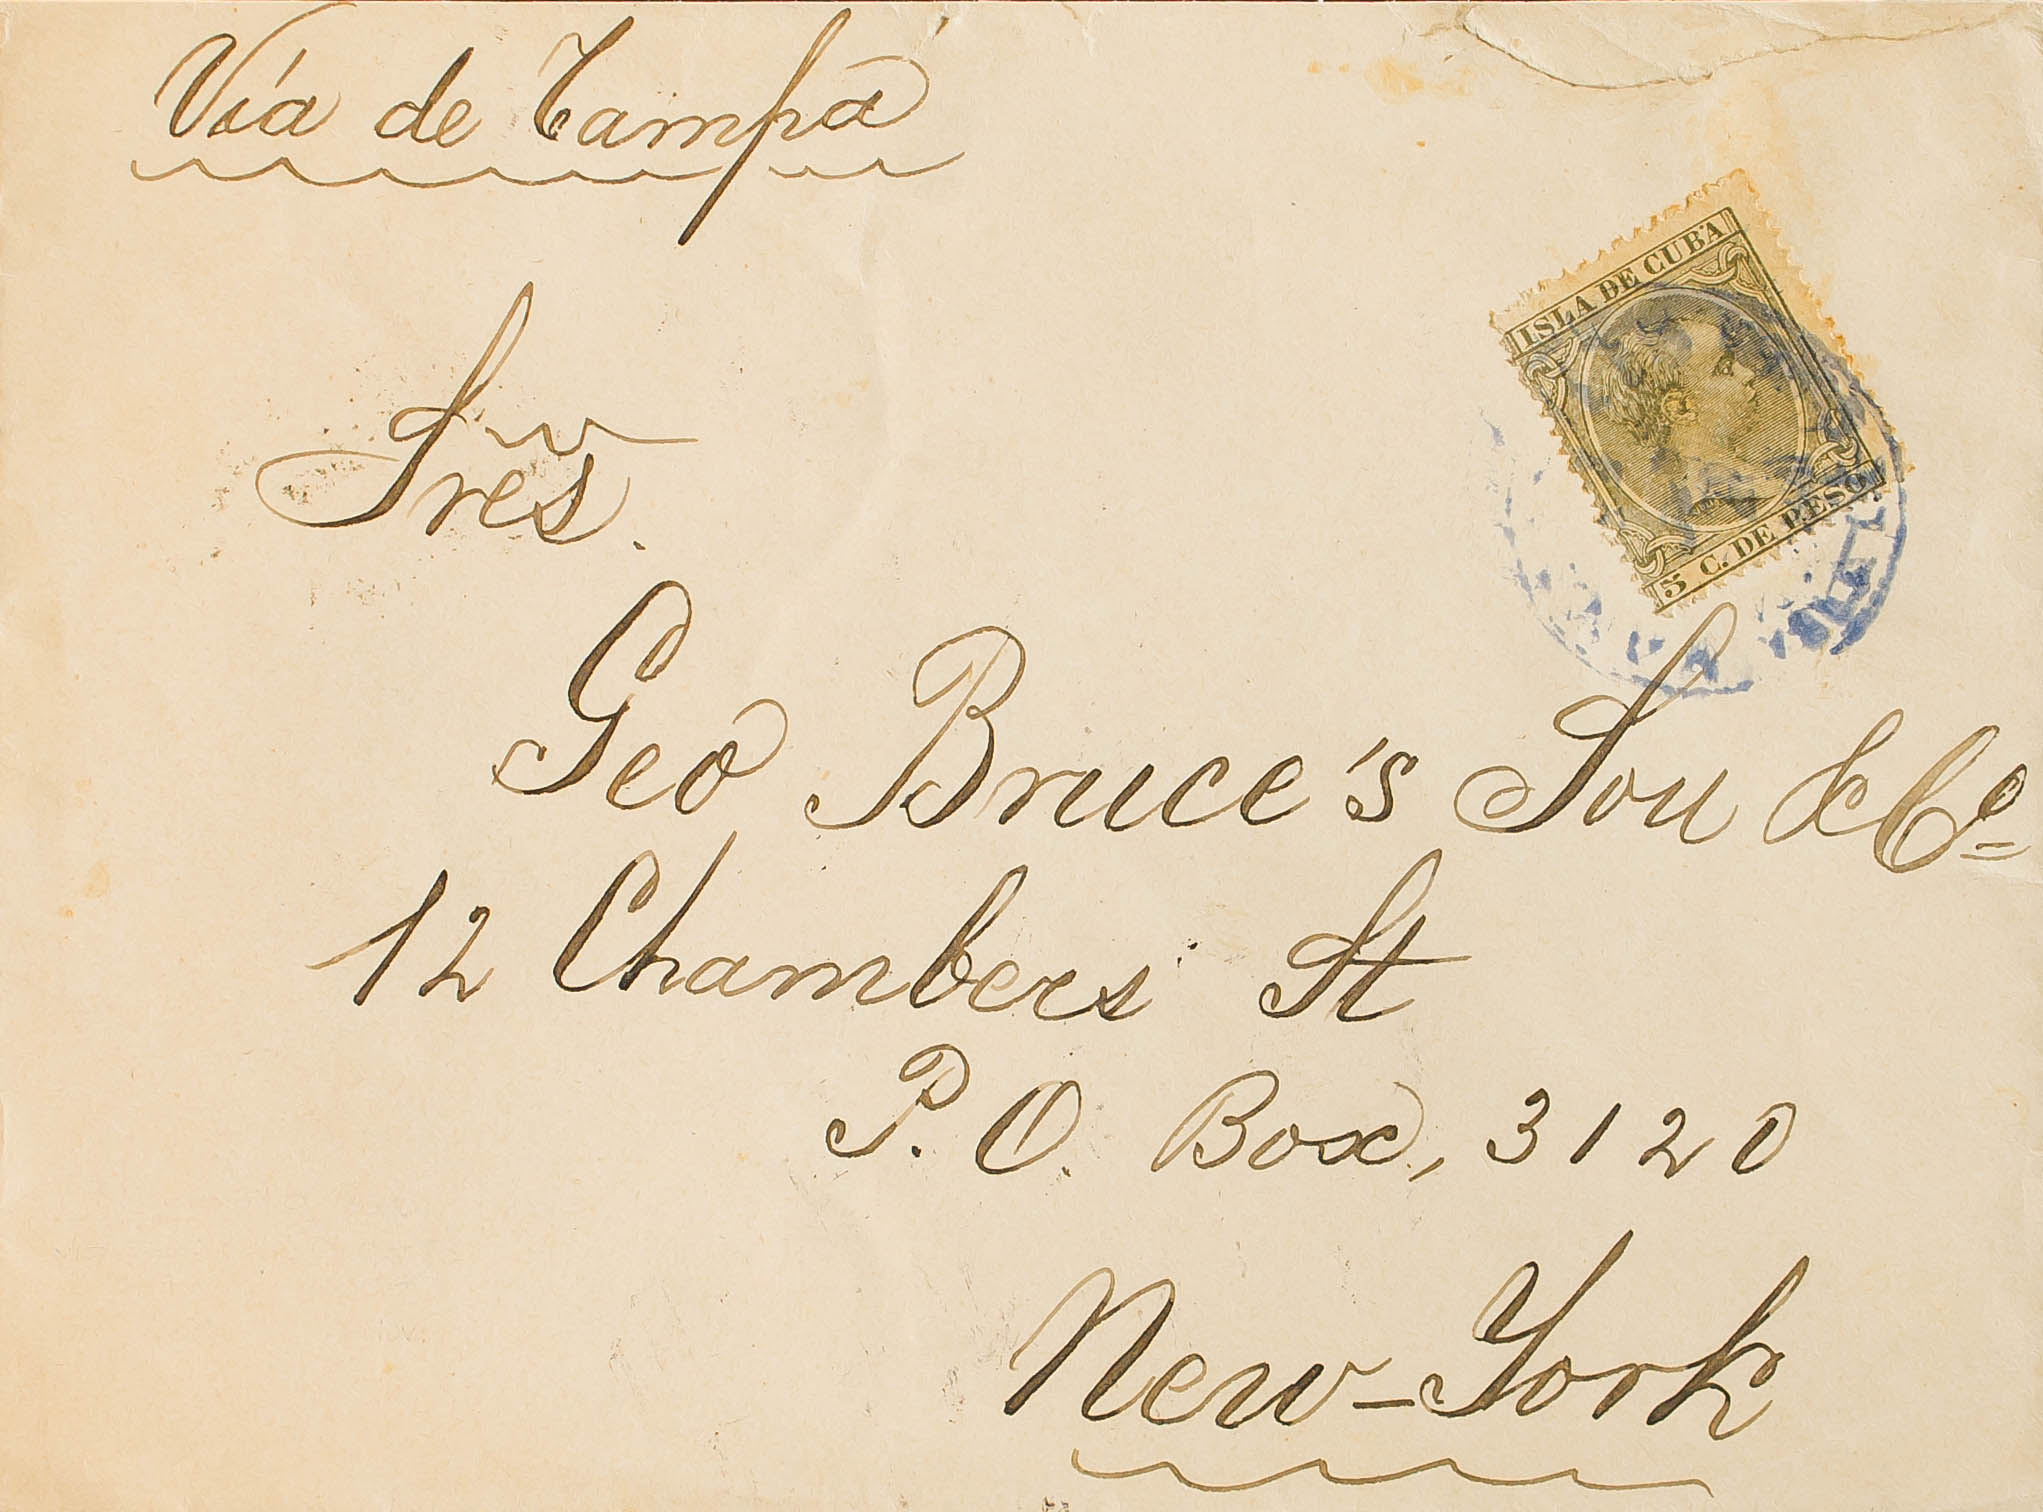 Vía de Tampa
ISLA DE CUBA
5 C. DE PESO
Sres.
Geo Bruce's Son & Co
12 Chambers St
P. O. Box, 3120
New-York